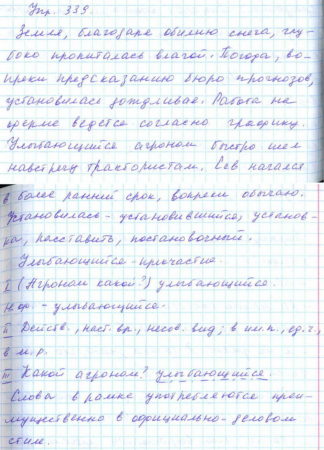 Упр. 339
Земля, благодаря обилию снега, глу-
боко пропиталась влагой. Погода, во-
преки предсказанию бюро прогнозов,
установилась дождливая. Работа на
ферме ведется согласно графику.
Улыбающийся агроном быстро шел
навстречу трактористам. Сев начался
в более ранний срок, вопреки обычаю.
Установилась - установившийся, установ-
ка, расставить, постановочный.
Улыбающийся - причастие.
I (Агроном какой?) улыбающийся.
Н.ф. - улыбающийся.
II Действ., наст. вр., несов. вид; в им.п., ед.ч.,
в м.р.
III Какой агроном? улыбающийся.
Слова в рамке употребляются преи-
мущественно в официально-деловом
стиле.